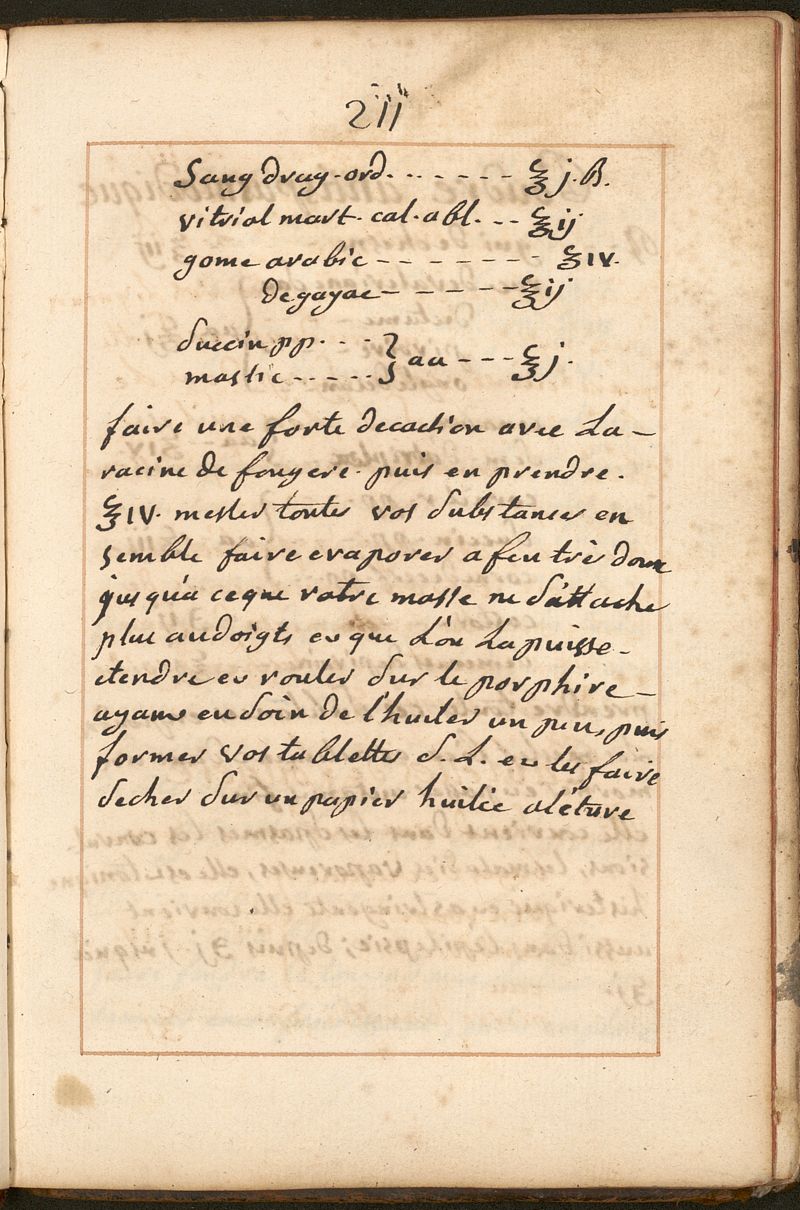 211
Sang drag. ord. - - - - - - ℥ j. ß.
vitriol mart. cal. abl. - - ℥ ij
gome arabic - - - - - - - ℥ IV.
de gayac - - - - - ℥ ij
Succin pp. - - - } aa - - - ℥ j.
mastic - - - - -
faire une forte decaction avec La -
racine de fougere. puis en prendre.
℥ IV. mesler toutes vos Substances en
semble faire evaporer a feu trè doux
jusqu'a ceque votre masse ne S'attache
plus audoigts et que L'on Lapuisse -
etendre et rouler Sur le porphire -
ayant eu Soin de l'huiler un peu, puis
former vos tablettes S. L. et les faire
Secher Sur un papier huilée aléture